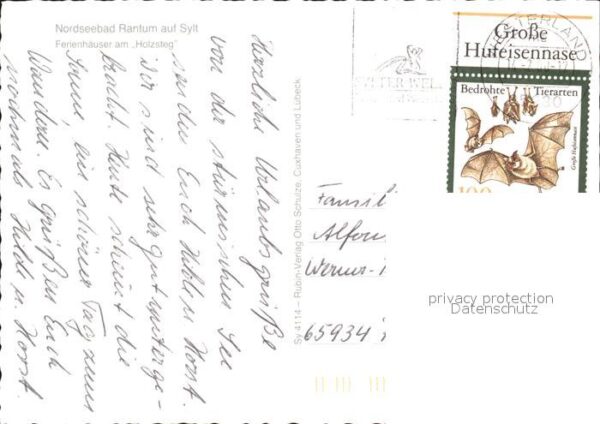 Nordseebad Rantum auf Sylt
Ferienhäuser am „Holzstieg"
Herzliche Urlaubsgrüße
von der stürmischen See
senden Euch Hilde u. Horst.
Wir sind sehr gut unterge-
bracht. Heute scheint die
Sonne, ein schöner Tag zum
Wandern. Es grüßen Euch
nochmals Hilde u. Horst.
Sy 4114 – Rubin-Verlag Otto Schulze, Cuxhaven und Lübeck
WESTERLAND
Große
Hufeisennase
Bedrohte Tierarten
Große Hufeisennase
100
Famili
Werner-
65934
privacy protection
Datenschutz